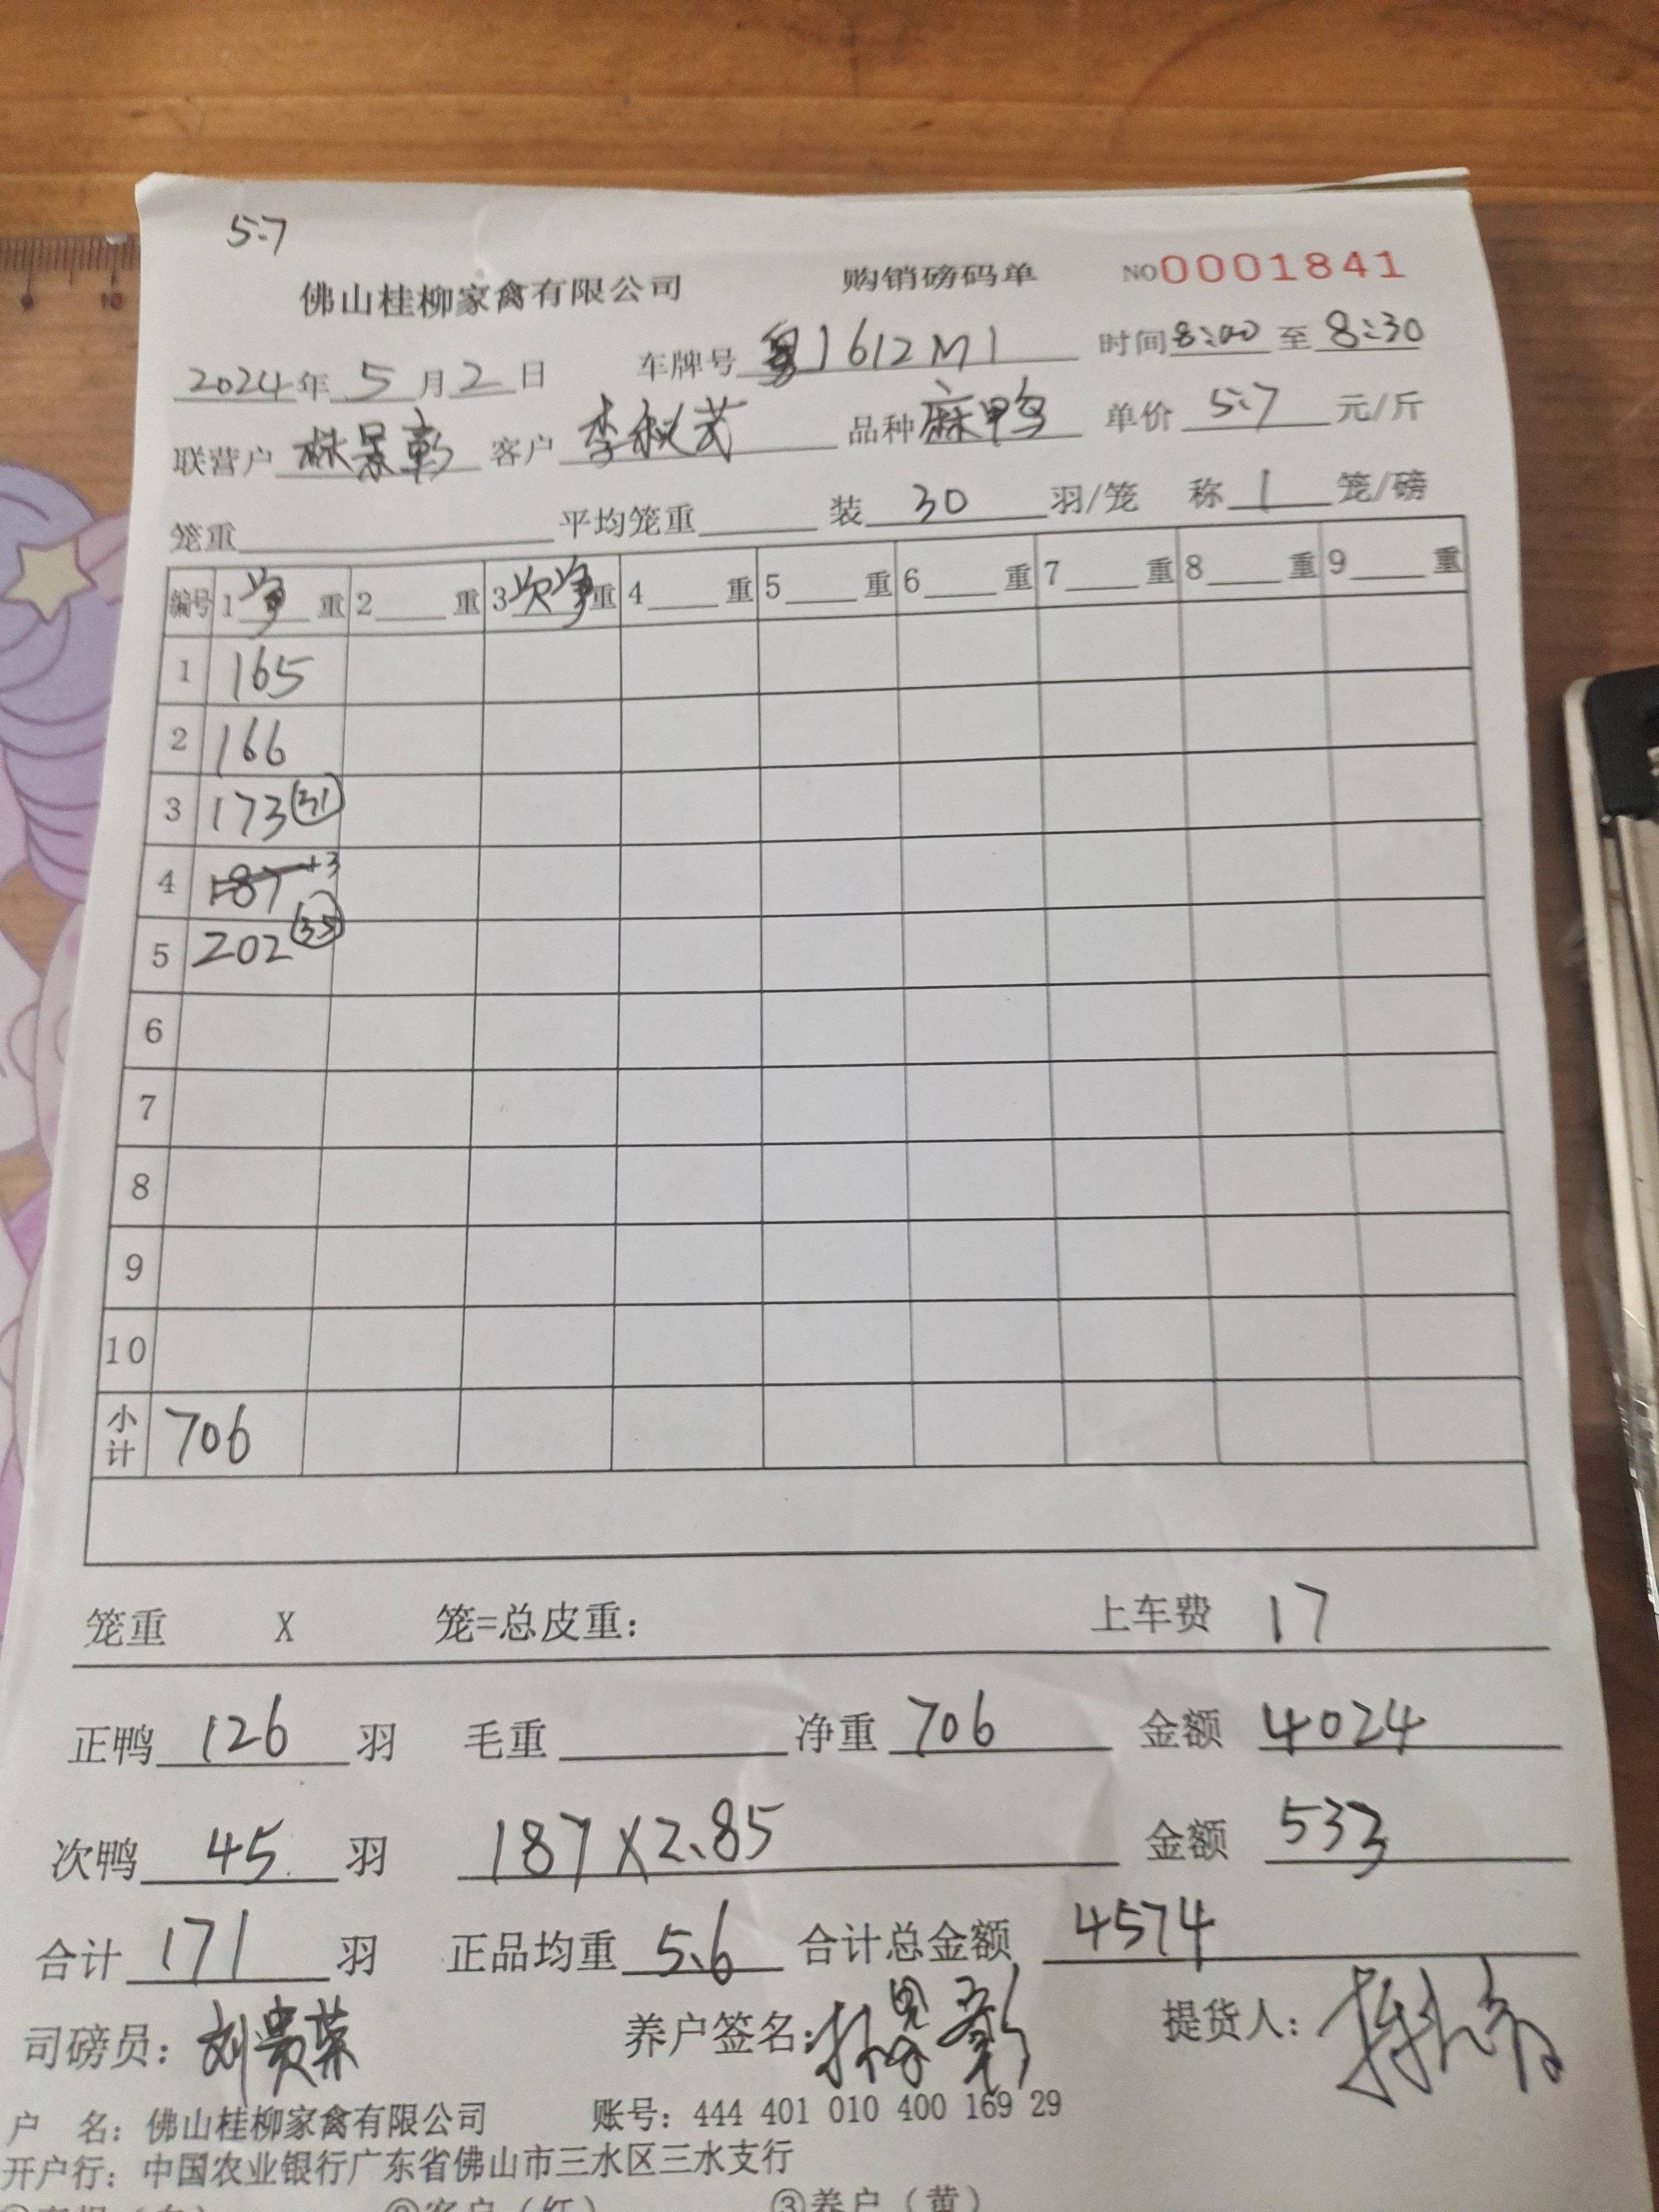 5.7
佛山桂柳家禽有限公司 购销磅码单 NO0001841
2024年 5 月 2 日 车牌号 粤1612M1 时间 8:00 至 8:30
联营户 林景彰 客户 李秋茂 品种 麻鸭 单价 5.7 元/斤
笼重 平均笼重 装 30 羽/笼 称 1 笼/磅
编号 1 净 重 2 重 3 次净 重 4 重 5 重 6 重 7 重 8 重 9 重
1 165
2 166
3 173 31
4 187 +3
5 202 35
6
7
8
9
10
小计 706
笼重 X 笼=总皮重: 上车费 17
正鸭 126 羽 毛重 净重 706 金额 4024
次鸭 45 羽 187X2.85 金额 533
合计 171 羽 正品均重 5.6 合计总金额 4574
司磅员: 刘贵荣 养户签名: 林景彰 提货人:
户 名: 佛山桂柳家禽有限公司 账号: 444 401 010 400 169 29
开户行: 中国农业银行广东省佛山市三水区三水支行
②客户(红) ③养户(黄)